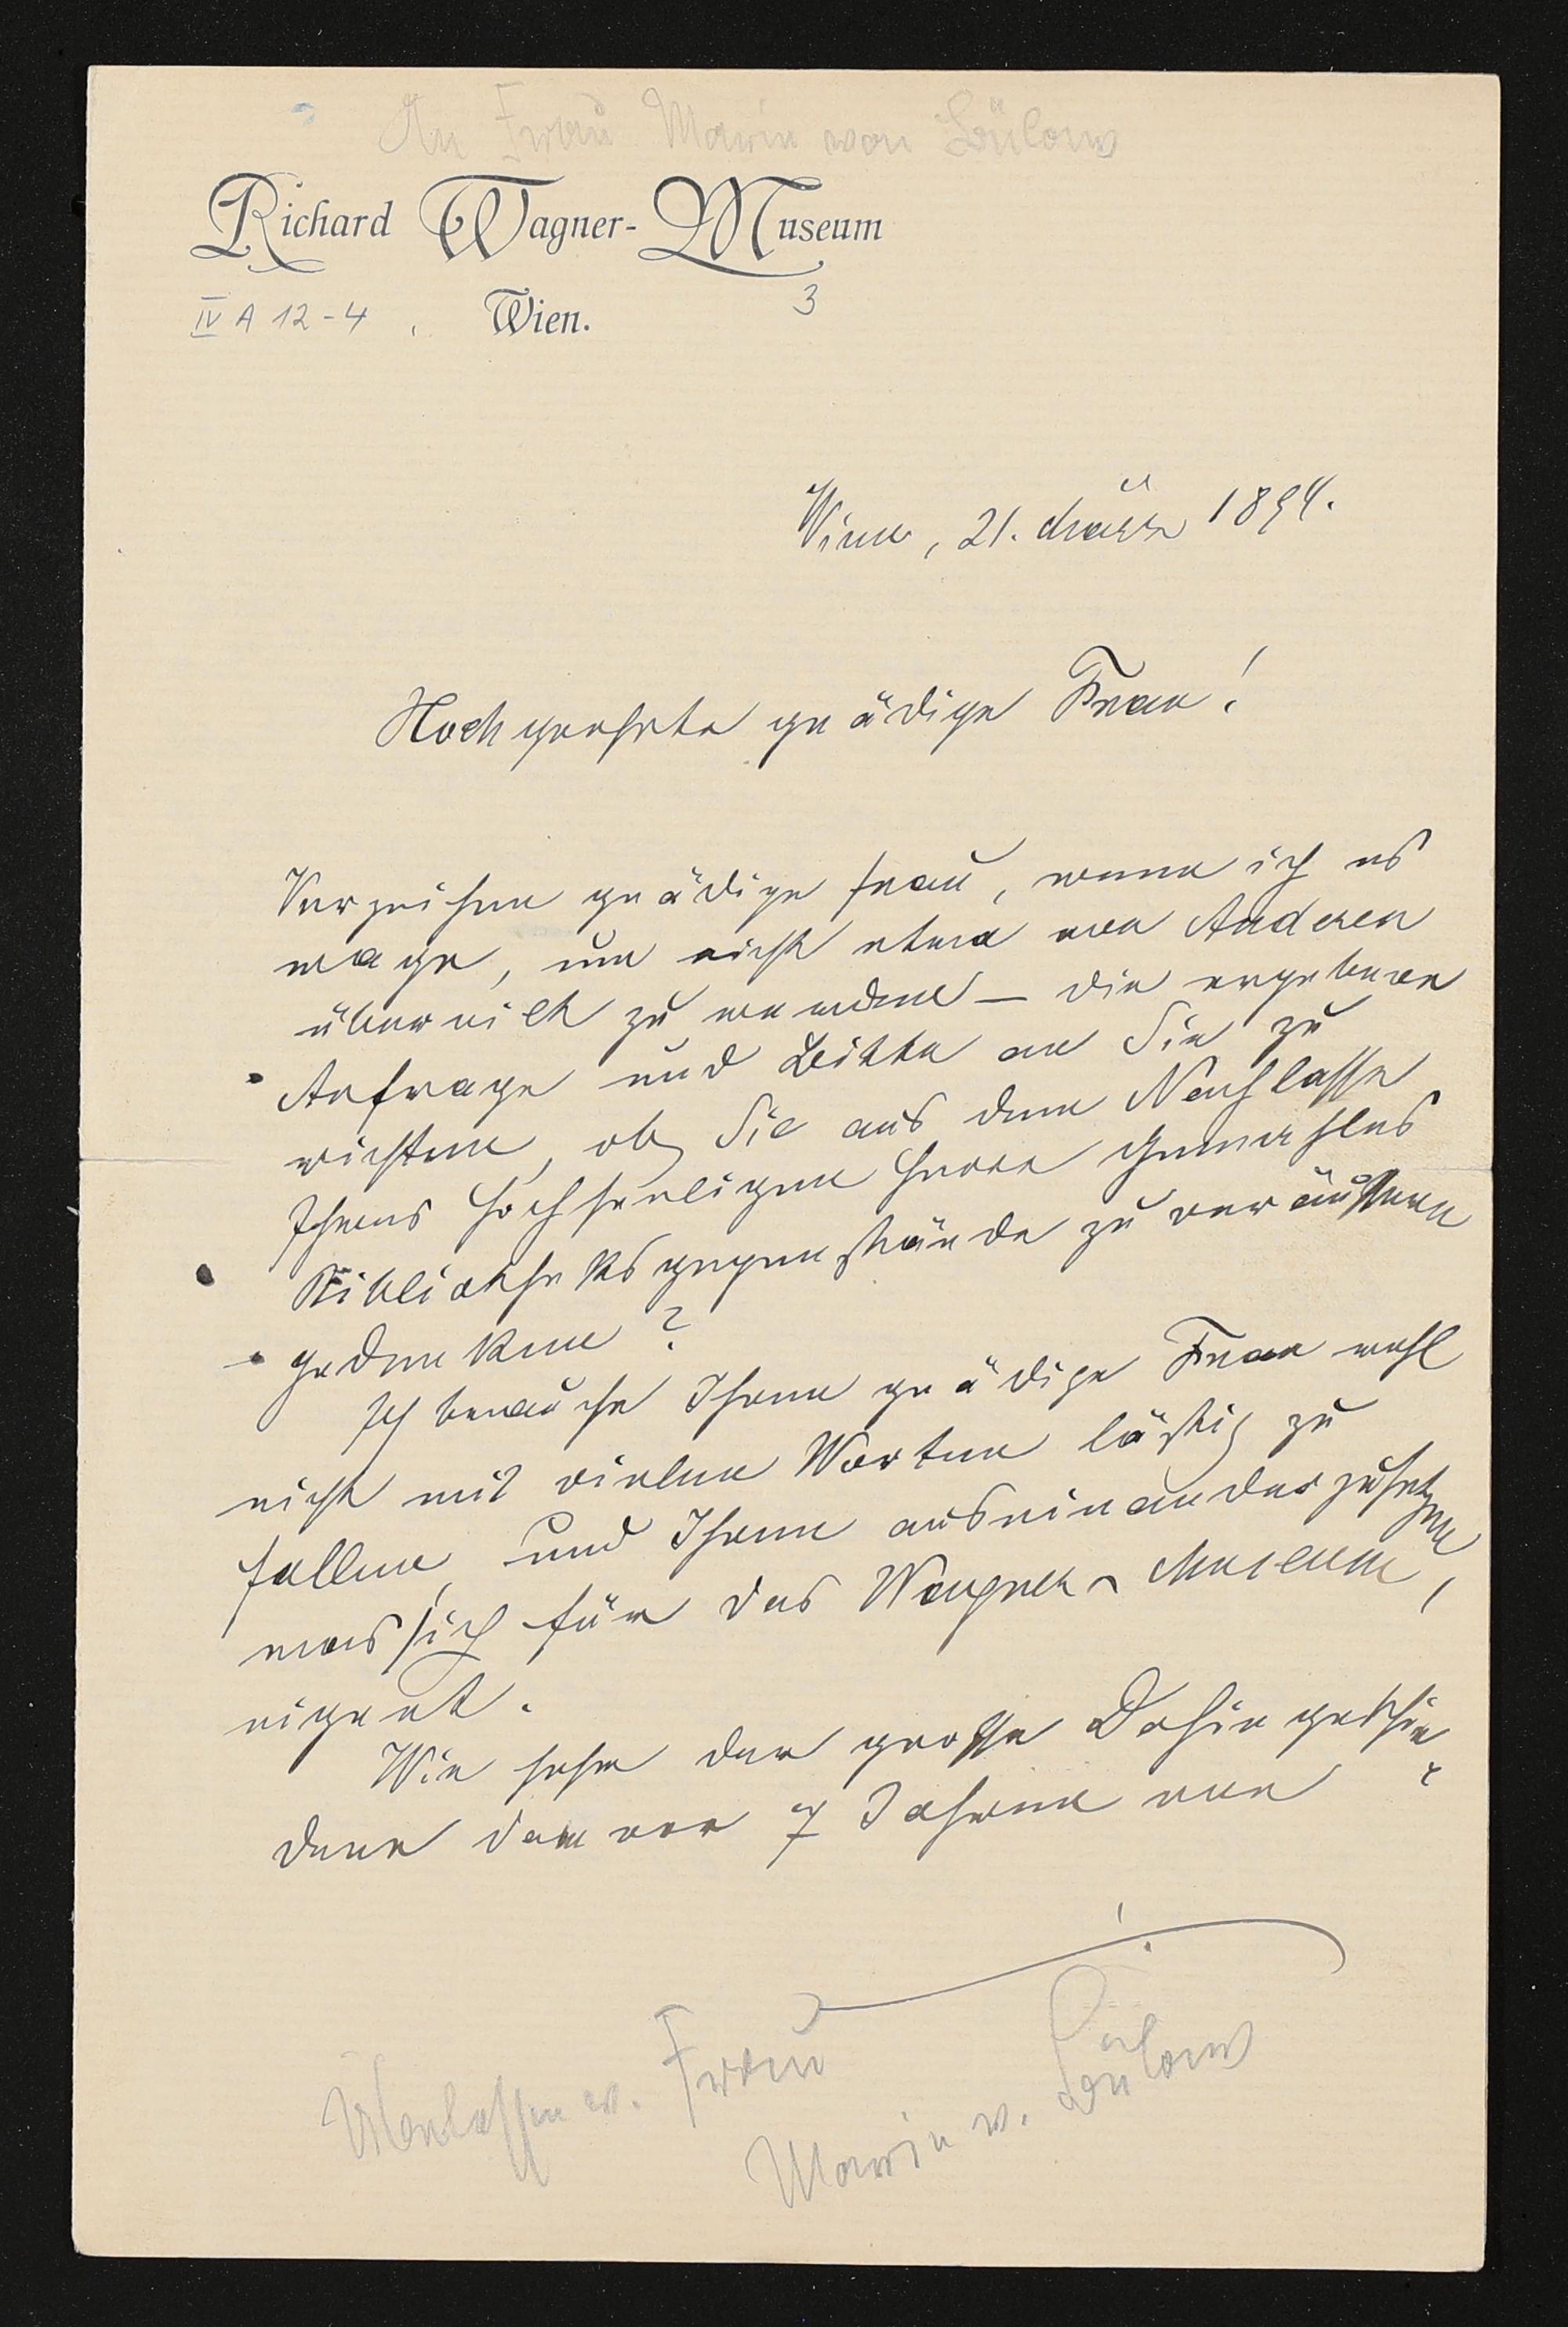 An Frau Marie von Bülow
Richard Wagner-Museum
IV A 12-4 Wien. 3
Wien, 21. März 1894.
Hochgeehrte gnädige Frau!
Verzeihen gnädige Frau, wenn ich es
wage, um nicht etwa von Anderen
übereilt zu werden – die ergebene
Anfrage und Bitte an Sie zu
richten, ob Sie aus dem Nachlasse
Ihres hochseligen Herrn Gemahles
Bibliotheksgegenstände zu veräußern
gedenken?
Ich brauche Ihnen gnädige Frau wohl
nicht mit vielen Worten lästig zu
fallen, und Ihnen auseinanderzusetzen
was sich für das Wagner-Museum,
eignet.
Wie sehr der grosse Dahingeschie-
dene dem vor 7 Jahren von
Frau
Marie v. Bülow